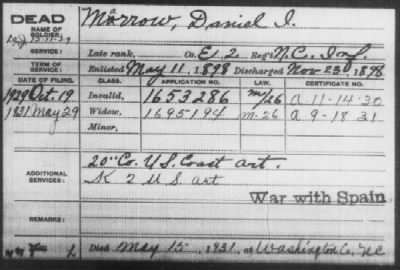 DEAD
NAME OF SOLDIER:
Marrow, Daniel I.
SERVICE:
Late rank, Co. E, 2 Reg't N.C. Inf.
TERM OF SERVICE:
Enlisted May 11, 1898 Discharged Nov 23, 1898
DATE OF FILING. CLASS. APPLICATION NO. LAW. CERTIFICATE NO.
1929 Oct. 19 Invalid, 1653286 m/26 A 11-14-30
1931 May 29 Widow, 1695194 m-26 A 9-18 31
Minor,
ADDITIONAL SERVICES:
20" Co. U.S. Coast Art.
K 2 U S art
War with Spain
REMARKS:
Died May 15, 1931, at Washington Co, NC